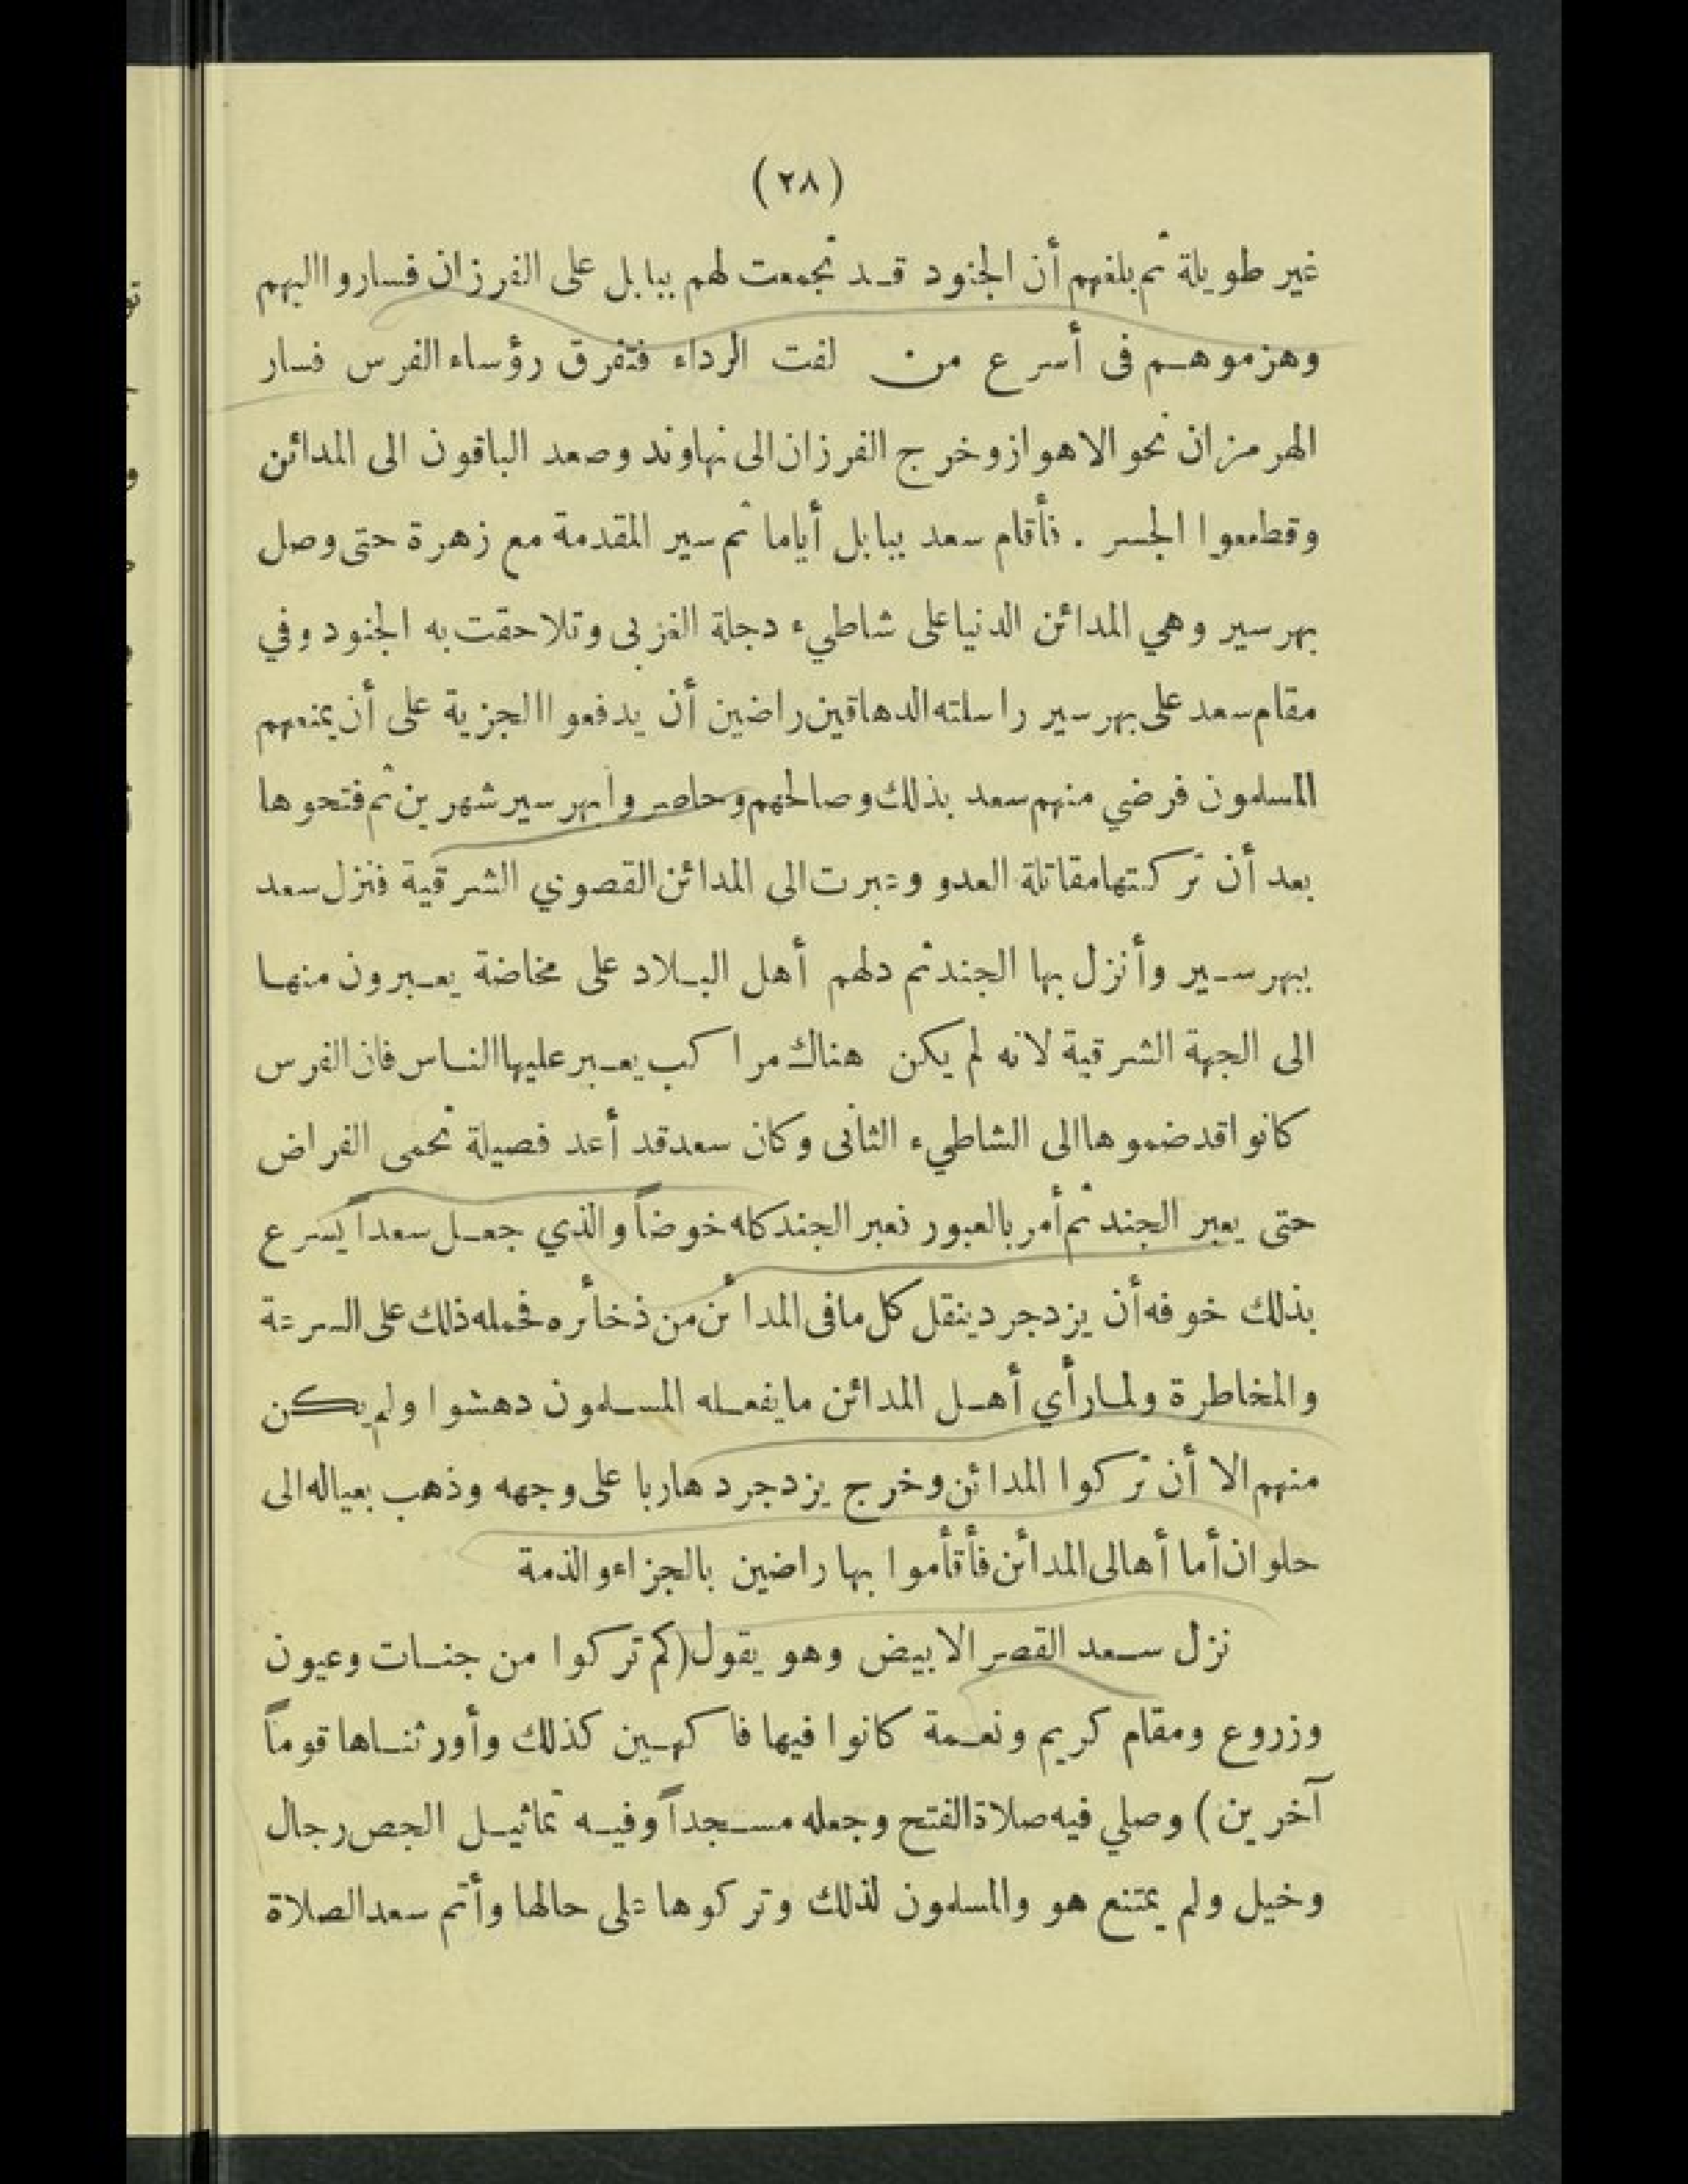 (٢٨)
غير طويلة ثم بلغهم أن الجنود قد تجمعت لهم ببابل على الفرزان فساروا اليهم
وهزموهم فى أسرع من لفت الرداء فتفرق رؤساء الفرس فسار
الهرمزان نحو الاهواز وخرج الفرزان الى نهاوند وصعد الباقون الى المدائن
وقطعوا الجسر . فأقام سعد ببابل أياما ثم سير المقدمة مع زهرة حتى وصل
بهرسير وهي المدائن الدنيا على شاطيء دجلة الغربى وتلاحقت به الجنود وفي
مقام سعد على بهرسير راسلته الدهاقين راضين أن يدفعوا الجزية على أن يمنعهم
المسلمون فرضي منهم سعد بذلك وصالحهم وحاصروا بهرسير شهرين ثم فتحوها
بعد أن تركتها مقاتلة العدو وعبرت الى المدائن القصوي الشرقية فنزل سعد
ببهرسير وأنزل بها الجند ثم دلهم أهل البلاد على مخاضة يعبرون منها
الى الجهة الشرقية لانه لم يكن هناك مراكب يعبر عليها الناس فان الفرس
كانوا قد ضموها الى الشاطيء الثانى وكان سعد قد أعد فصيلة تحمى الفراض
حتى يعبر الجند ثم أمر بالعبور فعبر الجند كله خوضاً والذي جعل سعداً يسرع
بذلك خوفه أن يزدجرد ينقل كل ما فى المدائن من ذخائره فحمله ذلك على السرعة
والمخاطرة ولما رأي أهل المدائن ما يفعله المسلمون دهشوا ولم يكن
منهم الا أن تركوا المدائن وخرج يزدجرد هاربا على وجهه وذهب بعياله الى
حلوان أما أهالى المدائن فأقأموا بها راضين بالجزاء والذمة
نزل سعد القصر الابيض وهو يقول (كم تركوا من جنات وعيون
وزروع ومقام كريم ونعمة كانوا فيها فاكهين كذلك وأورثناها قوماً
آخرين) وصلي فيه صلاة الفتح وجعله مسجداً وفيه تماثيل الجص رجال
وخيل ولم يمتنع هو والمسلمون لذلك وتركوها على حالها وأتم سعد الصلاة